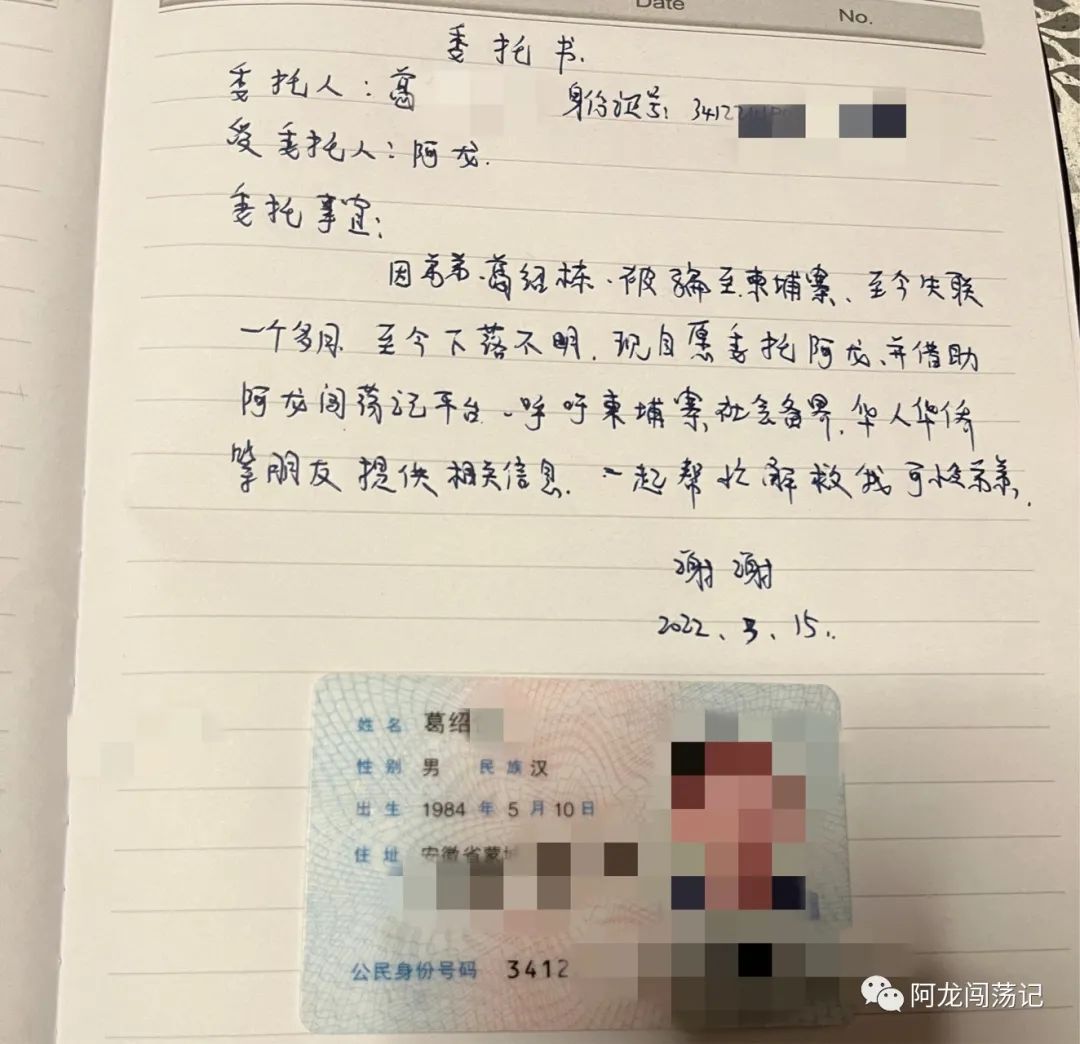 Date
No.
委托书.
委托人：葛 身份证号：3412
受委托人：阿龙.
委托事宜：
因弟弟.葛经栋.被骗至柬埔寨、至今失联
一个多月 至今下落不明.现自愿委托阿龙、并借助
阿龙闯荡记平台、呼吁柬埔寨社会各界、华人华侨
等朋友提供相关信息.一起帮忙解救我可怜弟弟.
谢谢
2022、3、15..
姓名 葛绍
性别 男 民族 汉
出生 1984 年 5 月 10 日
住址 安徽省蒙城
公民身份号码 3412
阿龙闯荡记